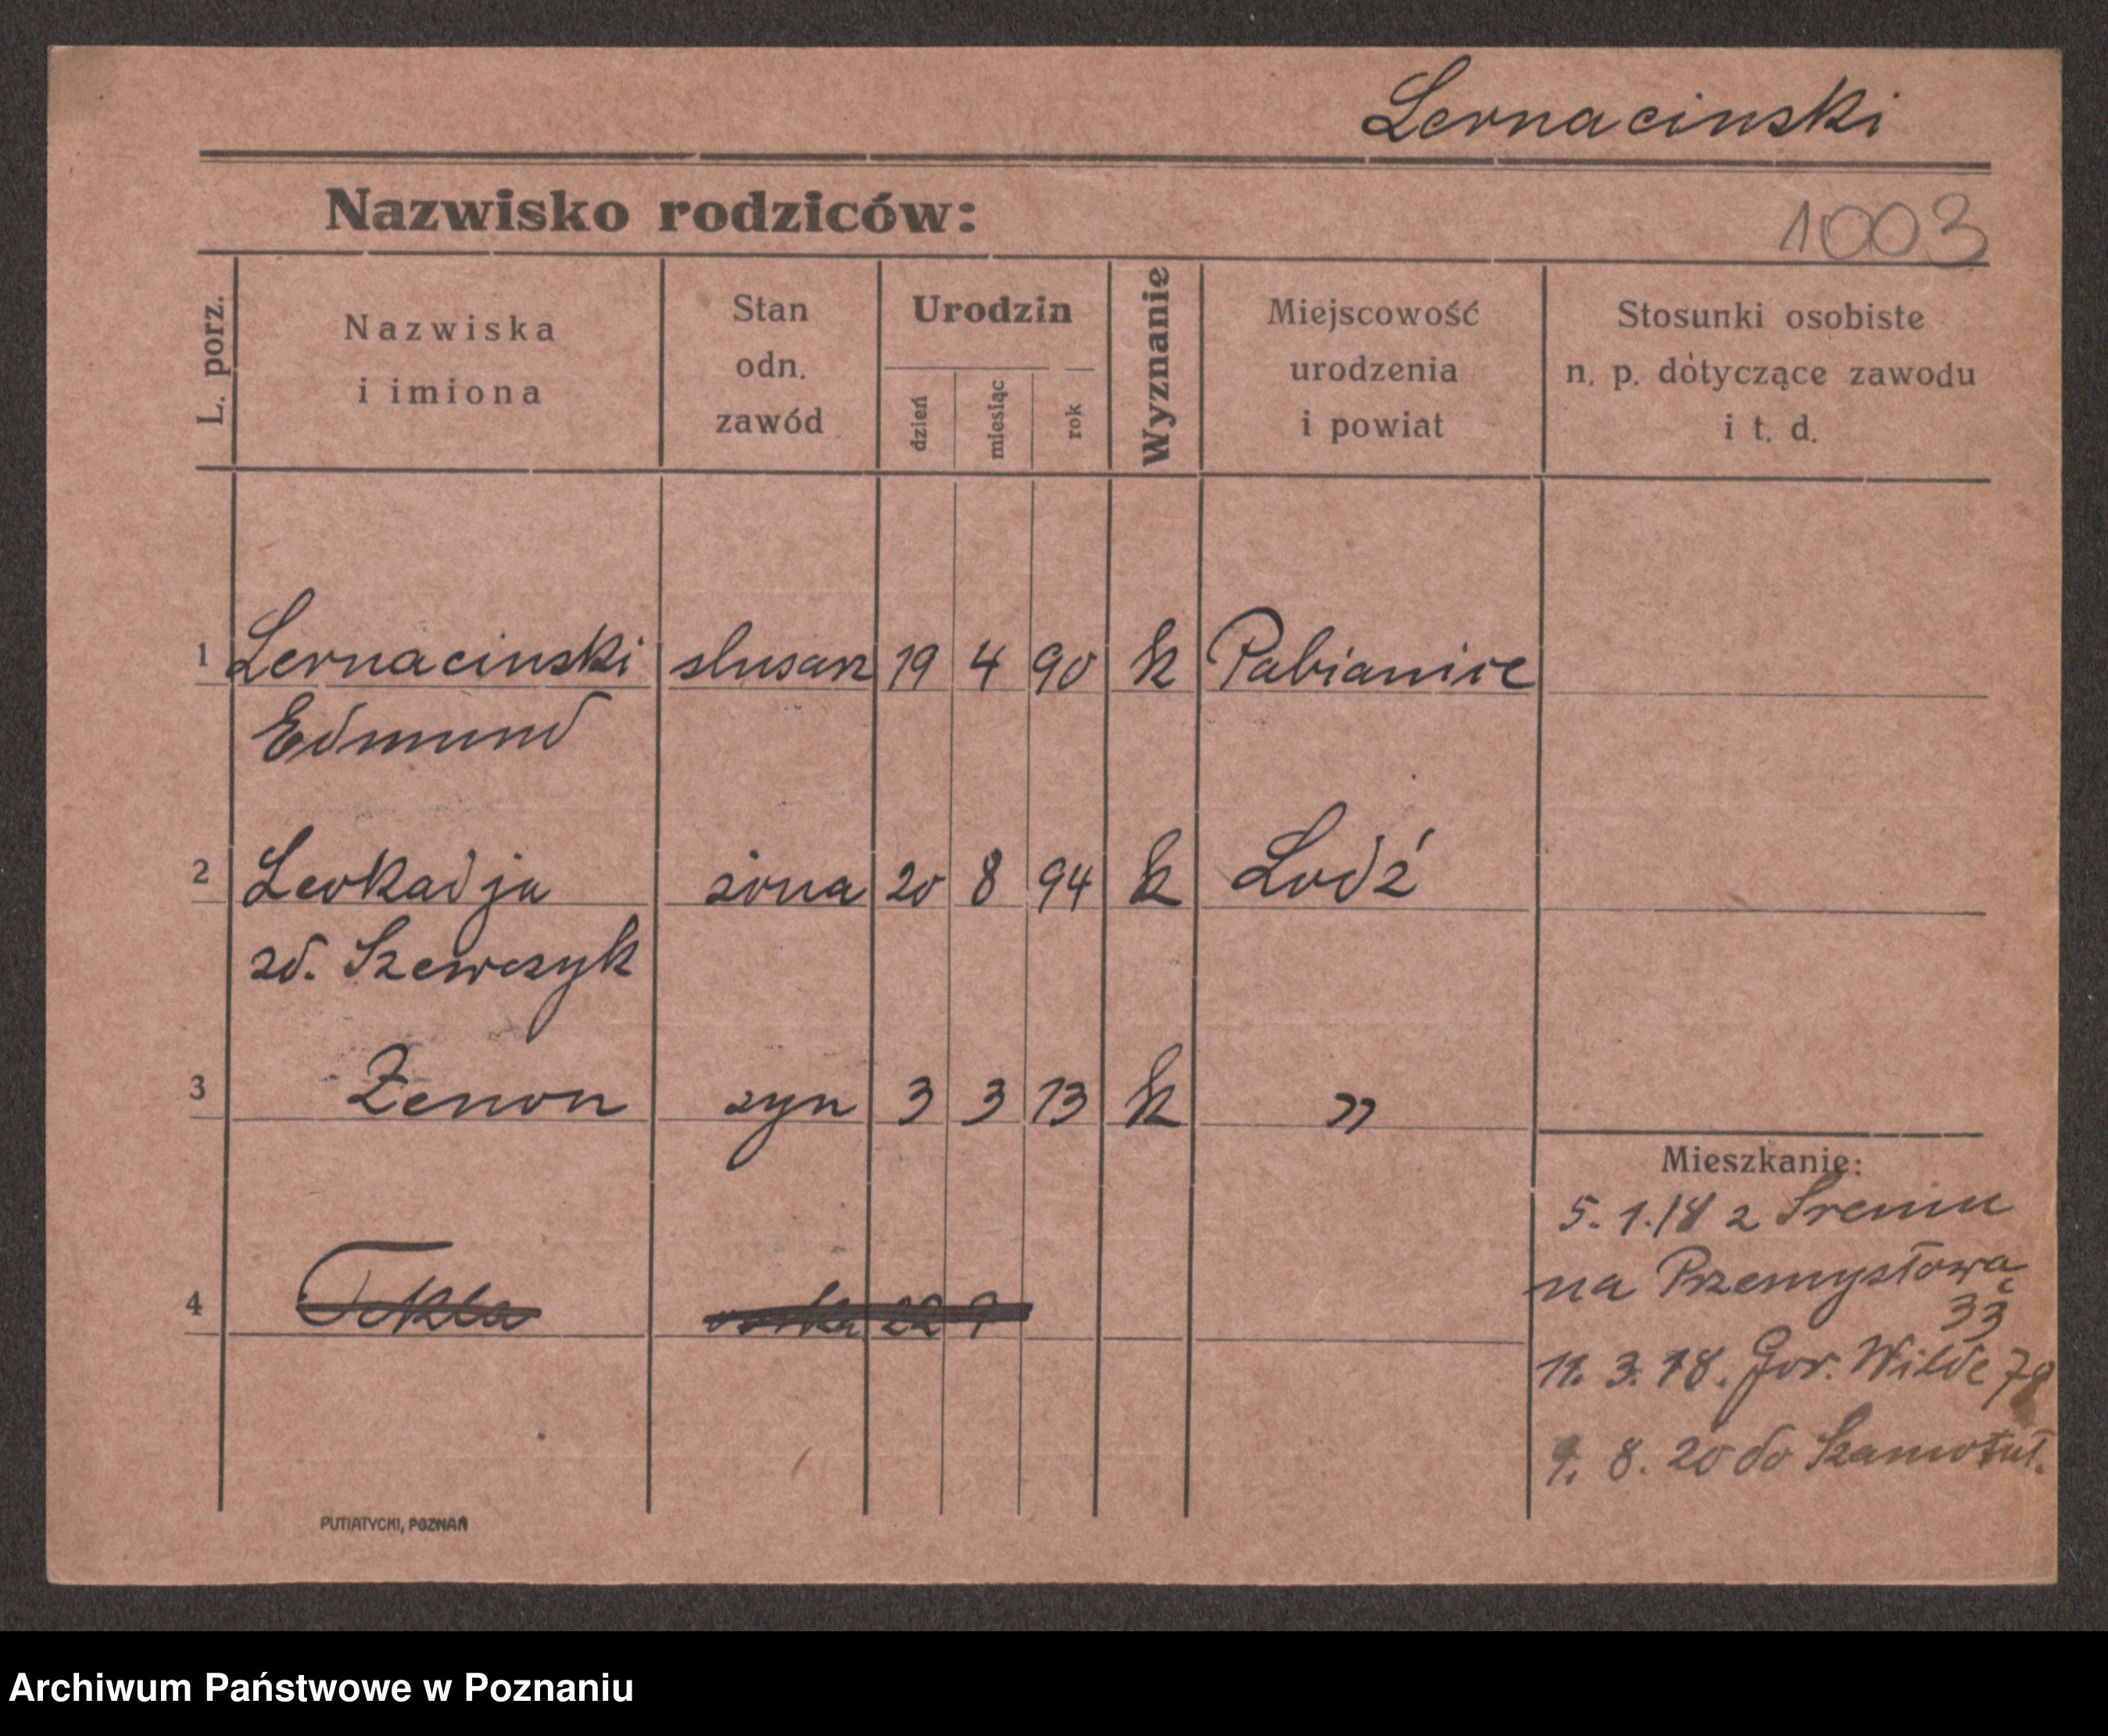 Lernacinski
Nazwisko rodziców:
1003
L. porz.
Nazwiska
i imiona
Stan
odn.
zawód
Urodzin
dzień
miesiąc
rok
Wyznanie
Miejscowość
urodzenia
i powiat
Stosunki osobiste
n. p. dotyczące zawodu
i t. d.
1 Lernacinski slusarz 19 4 90 k Pabianice
Edmund
2 Leokadja zona 20 8 94 k Lodź
zd. Szewczyk
3 Zenon syn 3 3 13 k "
Mieszkanie:
5. 1. 18 z Sremu
na Przemysłową
33
11. 3. 18. Gor. Wilde 78
9. 8. 20 do Szamotuł.
4 Tekla 22 9
PUTIATYCKI, POZNAŃ
Archiwum Państwowe w Poznaniu